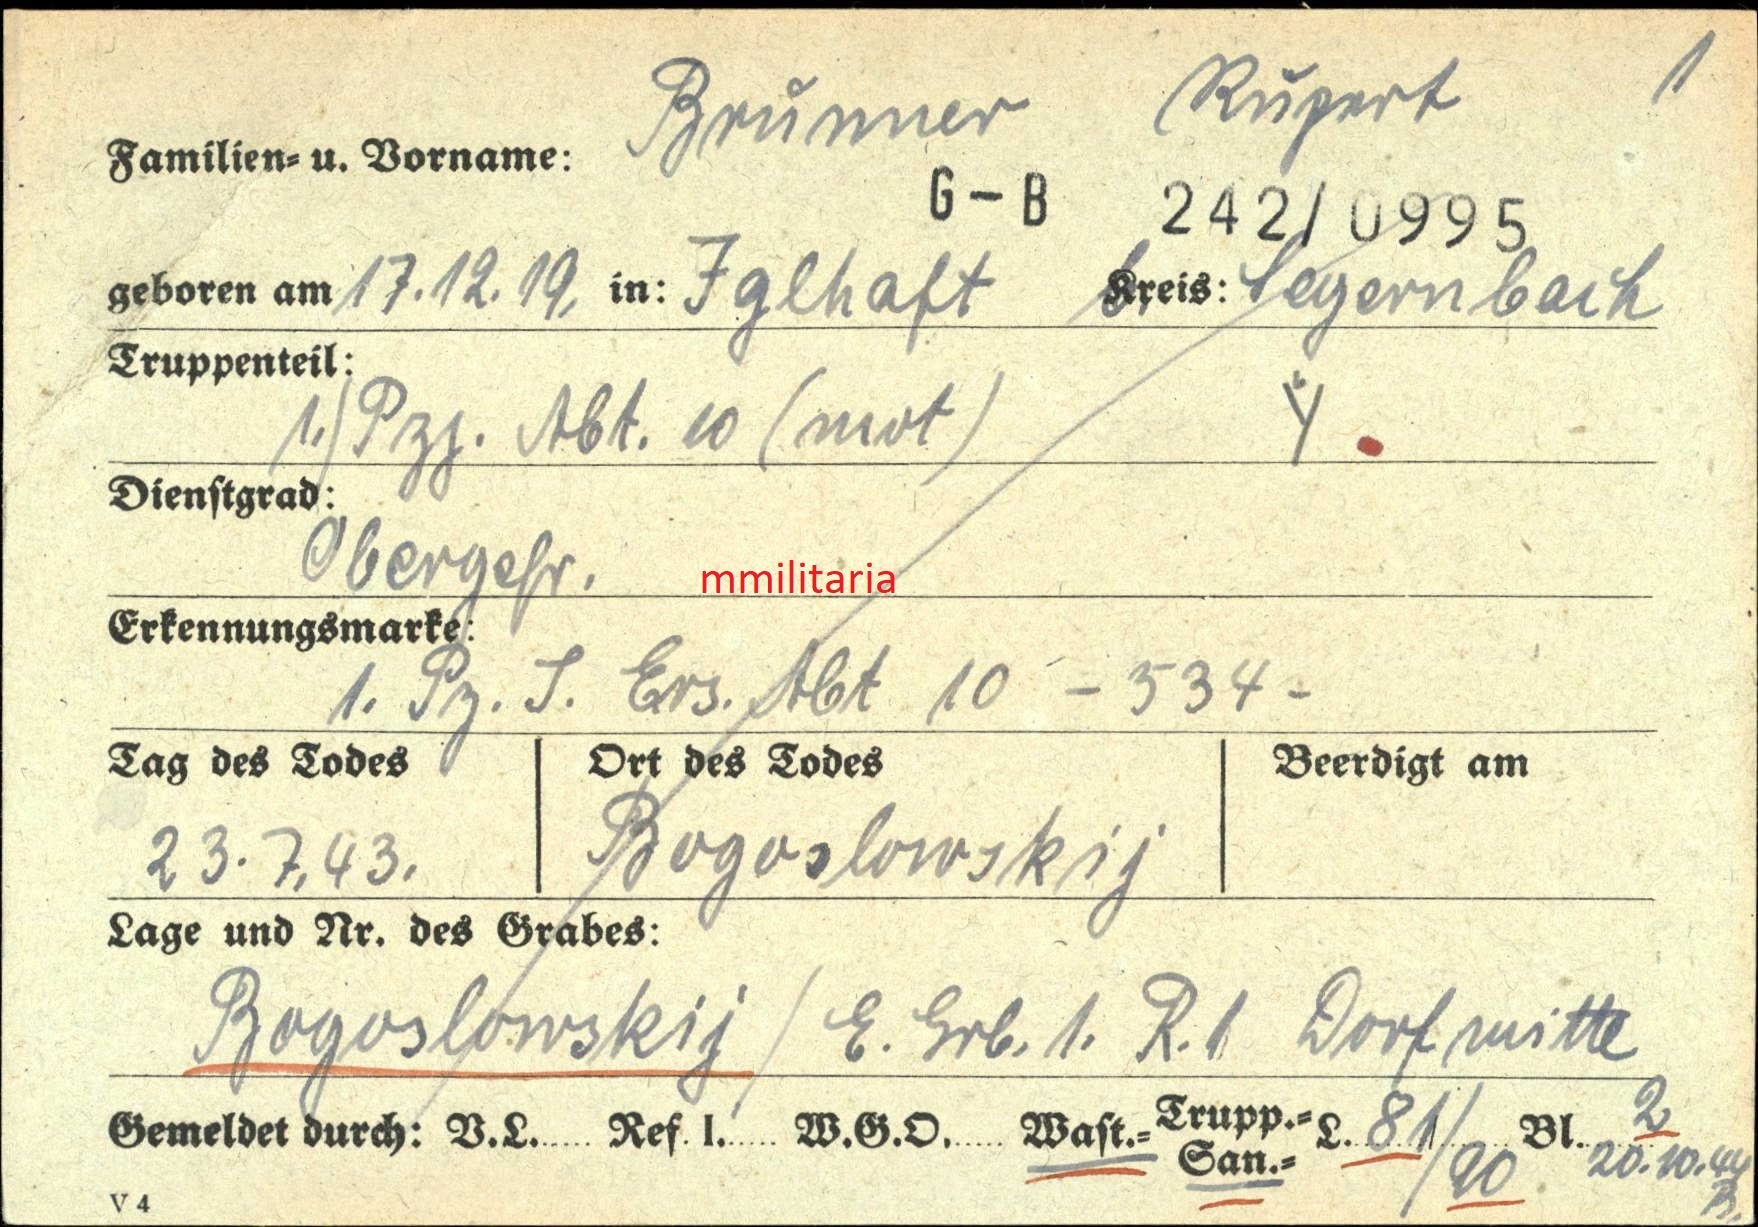 Brunner Rupert 1
Familien- u. Vorname:
G-B 242/0995
geboren am 17.12.19. in: Iglhaft Kreis: Legernbach
Truppenteil:
1./Pzj. Abt. 10 (mot)
Dienstgrad:
Obergefr.
mmilitaria
Erkennungsmarke:
1. Pz. J. Ers. Abt 10 - 534 -
Tag des Todes Ort des Todes Beerdigt am
23.7.43. Bogoslowskij
Lage und Nr. des Grabes:
Bogoslowskij / E. Grb. 1. R. 1 Dorfmitte
Gemeldet durch: V.L..... Ref. I..... W.G.O..... Wast.= Trupp.= L. 81/ Bl. 2
San.= 90 20.10.44
V 4